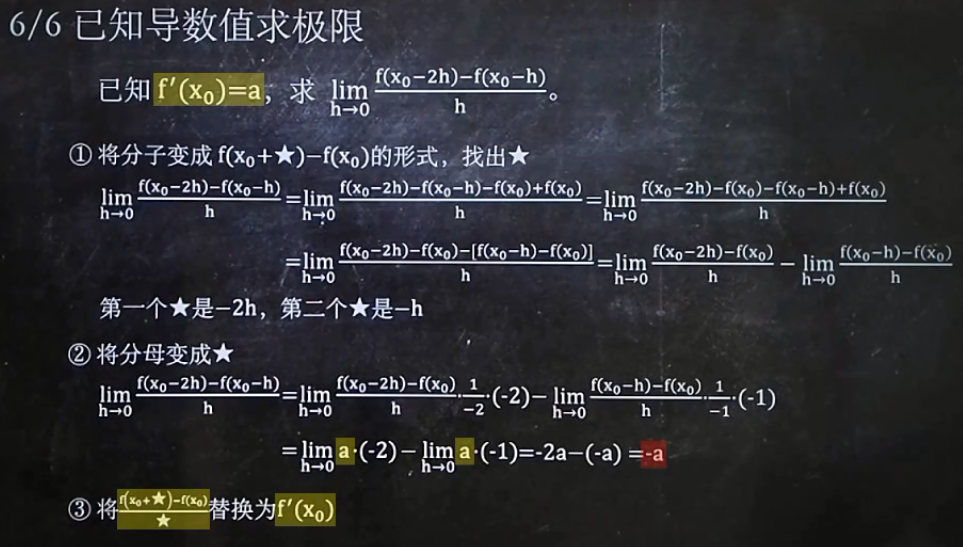 6/6 已知导数值求极限
已知 f′(x₀)=a，求 lim h→0 f(x₀−2h)−f(x₀−h) / h 。
① 将分子变成 f(x₀+★)−f(x₀)的形式，找出★
lim h→0 f(x₀−2h)−f(x₀−h) / h = lim h→0 f(x₀−2h)−f(x₀−h)−f(x₀)+f(x₀) / h = lim h→0 f(x₀−2h)−f(x₀)−f(x₀−h)+f(x₀) / h
= lim h→0 f(x₀−2h)−f(x₀)−[f(x₀−h)−f(x₀)] / h = lim h→0 f(x₀−2h)−f(x₀) / h − lim h→0 f(x₀−h)−f(x₀) / h
第一个★是−2h，第二个★是−h
② 将分母变成★
lim h→0 f(x₀−2h)−f(x₀−h) / h = lim h→0 f(x₀−2h)−f(x₀) / h · 1/−2 · (-2) − lim h→0 f(x₀−h)−f(x₀) / h · 1/−1 · (-1)
= lim h→0 a·(-2) − lim h→0 a·(-1)=-2a−(-a) =-a
③ 将 f(x₀+★)−f(x₀) / ★ 替换为f′(x₀)